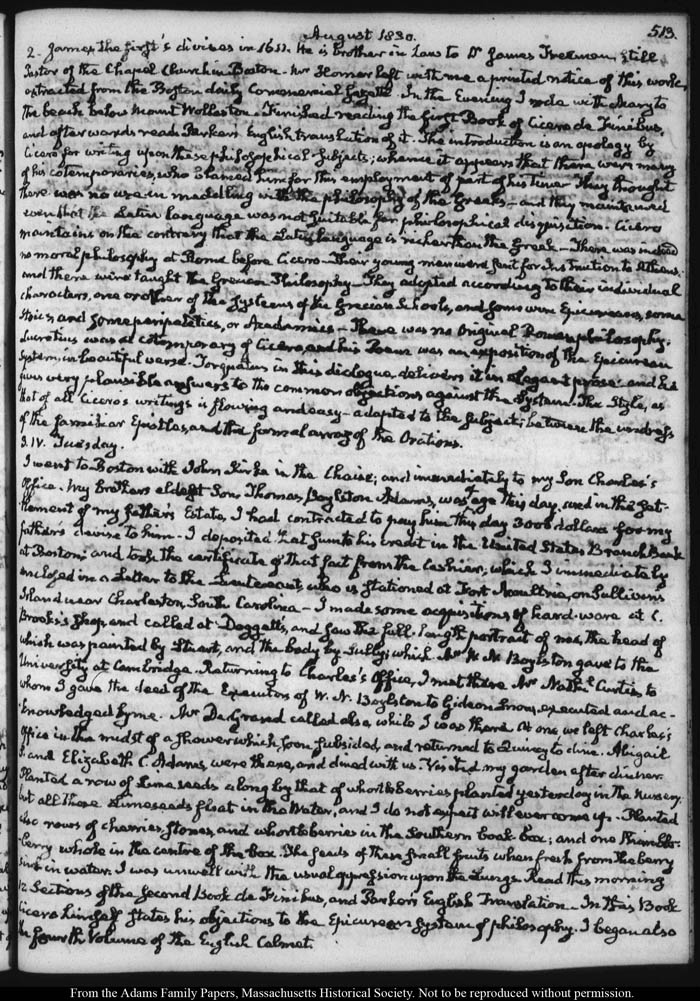 August 1830.
513.
2. James the first's divines in 1611. He is brother in Law to Dr James Freeman, still
Pastor of the Chapel Church in Boston. Mr Homer left with me a printed notice of this work,
extracted from the Boston daily Commercial Gazette. In the Evening I rode with Mary to
the beach below Mount Wollaston. Finished reading the first Book of Cicero de Finibus,
and afterwards read Parkers English translation of it. The introduction is an apology by
Cicero for writing upon these philosophical subjects; whence it appears that there were many
of his cotemporaries, who blamed him for this employment of part of his time. They thought
there was no use in meddling with the philosophy of the Greeks— and they maintained
even that the Latin language was not suitable for philosophical disquisition. Cicero
maintains on the contrary that the Latin language is richer than the Greek— There was indeed
no moral philosophy at Rome before Cicero— Their young men were sent for instruction to Athens,
and there were taught the Grecian Philosophy— They adopted according to their individual
characters, one or other of the Systems of the Grecian Schools, and some were Epicureans, some
Stoics, and some peripatetics, or Academics— There was no Original Roman philosophy.
Lucretius was a cotemporary of Cicero, and his Poem was an exposition of the Epicurean
System, in beautiful verse. Torquatus in this dialogue delivers it in elegant prose and he
gives very plausible answers to the common objections against the System. The Style, as
that of all Cicero's writings is flowing and easy— adapted to the subject; between the undress
of the familiar Epistles, and the formal array of the Orations.
3. IV. Tuesday.
I went to Boston with John Kirke in the Chaise; and immediately to my Son Charles's
Office. My brothers eldest Son, Thomas Boylston Adams, was of age this day, and in the Set-
tlement of my father's Estate, I had contracted to pay him this day 3000 dollars for my
father's devise to him— I deposited that sum to his credit in the United States Branch Bank
at Boston; and took the certificate of that fact from the Cashier; which I immediately
enclosed in a Letter to the Lieutenant, who is stationed at Fort Moultrie, on Sullivan's
Island near Charleston South Carolina— I made some acquisitions of hard-ware at C.
Brooks's shop, and called at Doggett's, and saw the full length portrait of me, the head of
which was painted by Stuart, and the body by Sully; which Mr W. N. Boylston gave to the
University at Cambridge. Returning to Charles's Office, I met there Mr Nathl. Curtis, to
whom I gave the deed of the Executors of W. N. Boylston to Gideon Snow, executed and ac-
knowledged by me. Mr DeGrand called also, while I was there. At one we left Charles's
Office in the midst of a shower which soon subsided, and returned to Quincy to dine. Abigail
S. and Elizabeth C. Adams, were there, and dined with us. Visited my garden after dinner.
Planted a row of Lime seeds along by that of whortleberries planted yesterday in the Nursery.
but all these Limeseeds float in the Water, and I do not expect will ever come up. Planted
also rows of cherries, stones, and whortleberries in the Southern book box; and one Thimble-
berry whole in the centre of the box. The seeds of these small fruits when fresh from the berry
sink in water. I was unwell with the usual oppression upon the Lungs. Read this morning
12 Sections of the second Book de Finibus, and Parkers English Translation— In this Book
Cicero himself states his objections to the Epicurean System of philosophy. I began also
the fourth Volume of the English Calmet.
From the Adams Family Papers, Massachusetts Historical Society. Not to be reproduced without permission.